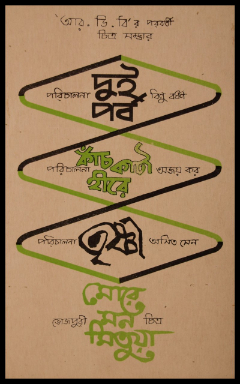 'আর. ডি. বি'র পরবর্তী
চিত্র সম্ভার
দুই
পর্ব
পরিচালনা বিনু বর্ধন
কাঁচ
কাটা
হীরে
পরিচালনা অজয় কর
তৃষ্ণা
পরিচালনা অসিত সেন
মোরে
মন
মিতুয়া
ভোজপুরী চিত্র